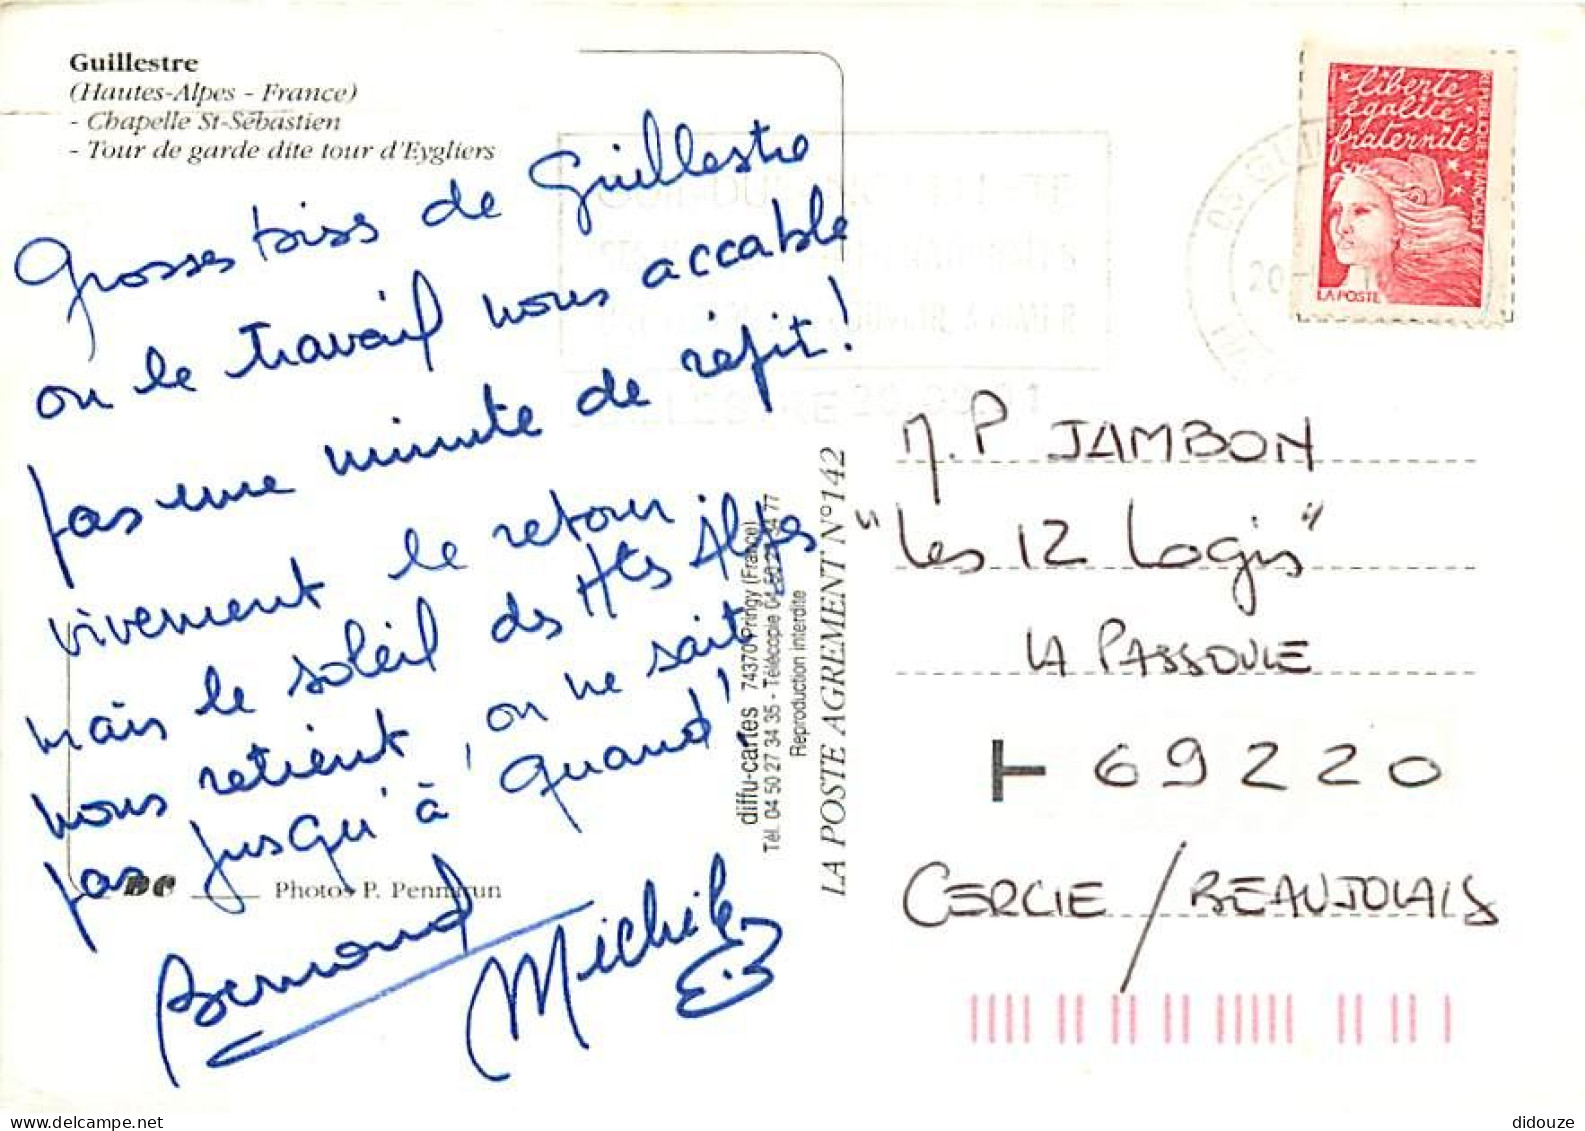 Guillestre
(Hautes-Alpes - France)
- Chapelle St-Sébastien
- Tour de garde dite tour d'Eygliers
Grosses biss de Guillestre
ou le travail nous accable
pas une minute de répit !
vivement le retour.
mais le soleil des Htes Alpes
nous retient, on ne sait
pas jusqu'à quand !
Bernard
Michile
DC
Photos P. Penn
diffu-cartes 74370 Pringy (France)
Tél. 04 50 27 34 35 - Télécopie 04 50 27 34 77
Reproduction interdite
LA POSTE AGREMENT N° 142
liberté
égalité
fraternité
REPUBLIQUE FRANÇAISE
LA POSTE
20
20.09.01
M.P JAMBON
"Les 12 Logis"
LA PASSOULE
69220
CERCIE / BEAUJOLAIS
didouze